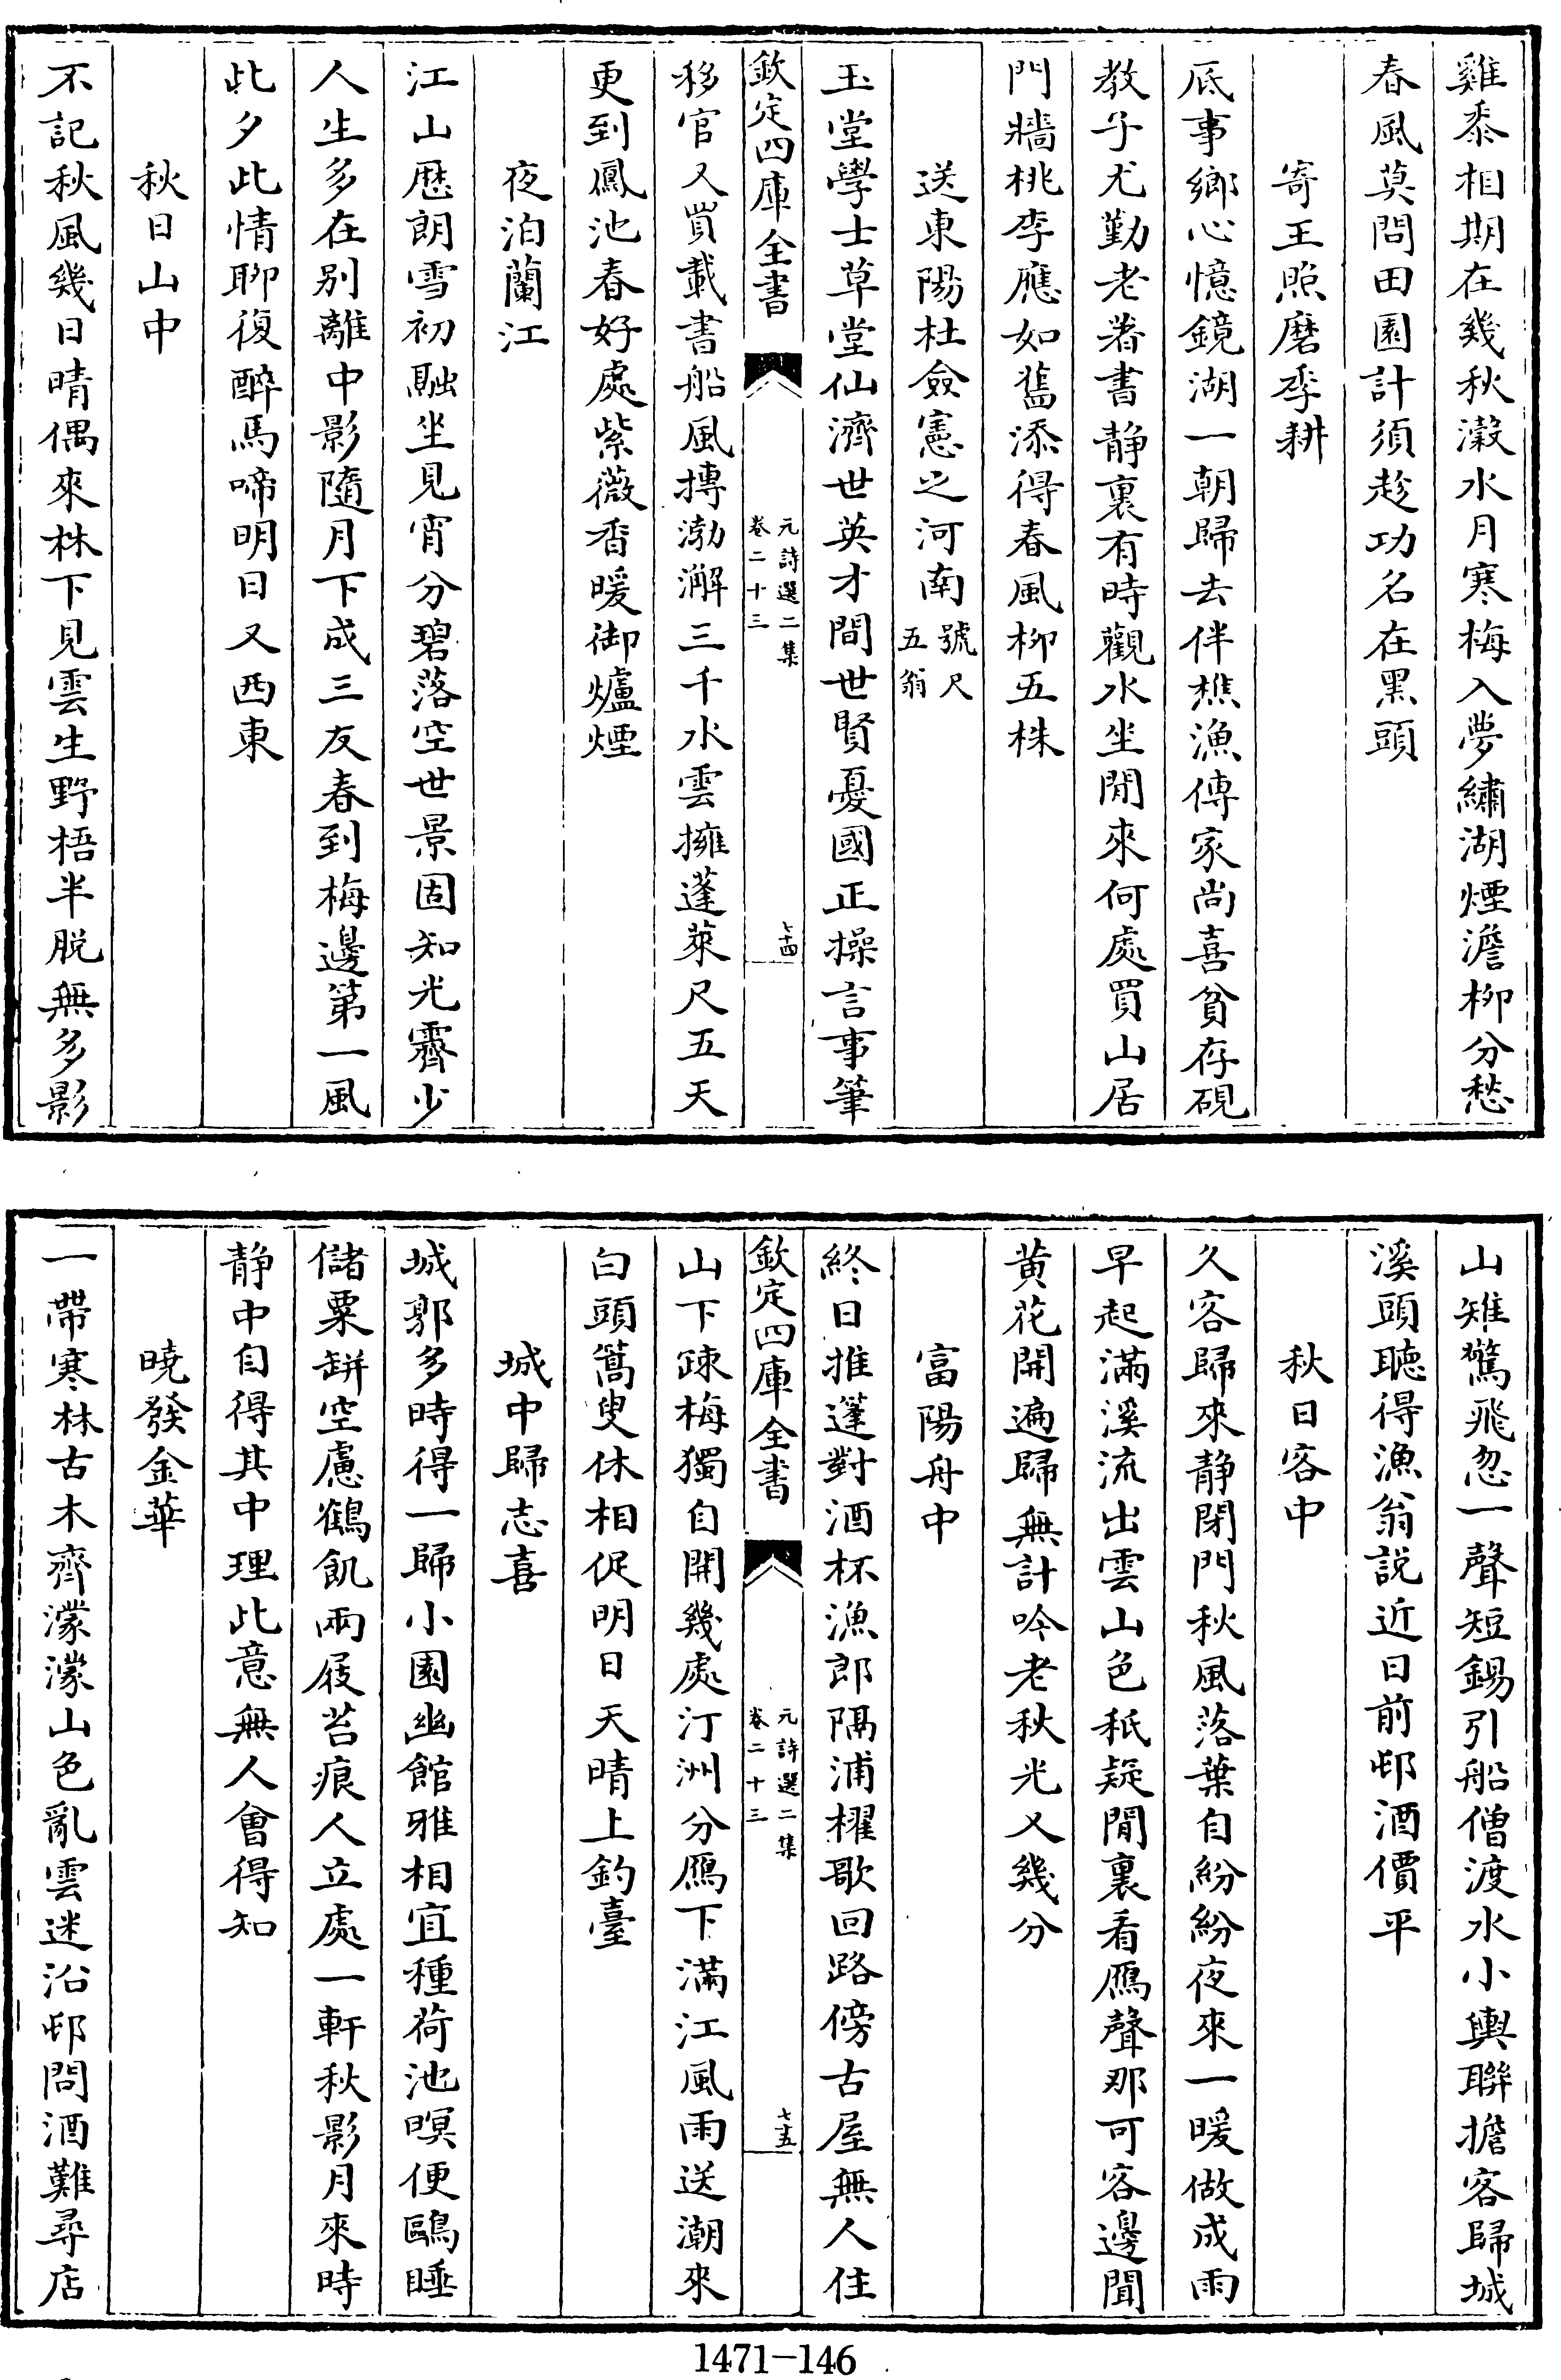 雞黍相期在幾秋瀔水月寒梅入夢繡湖煙澹柳分愁
春風莫問田園計須趁功名在黑頭
寄王照磨季耕
底事鄉心憶鏡湖一朝歸去伴樵漁傳家尚喜貧存硯
教子尤勤老著書静裏有時觀水坐閒來何處買山居
門牆桃李應如舊添得春風柳五株
送東陽杜僉憲之河南號尺五翁
玉堂學士草堂仙濟世英才間世賢憂國正操言事筆
欽定四庫全書
元詩選二集
卷二十三
七十四
移官又買載書船風摶渤澥三千水雲擁蓬萊尺五天
更到鳳池春好處紫薇香暖御爐煙
夜泊蘭江
江山歴朗雪初融坐見宵分碧落空世景固知光霽少
人生多在别離中影隨月下成三友春到梅邊第一風
此夕此情聊復醉馬啼明日又西東
秋日山中
不記秋風幾日晴偶來林下見雲生野梧半脱無多影
山雉驚飛忽一聲短錫引船僧渡水小輿聯擔客歸城
溪頭聽得漁翁説近日前邨酒價平
秋日客中
久客歸來静閉門秋風落葉自紛紛夜來一暖做成雨
早起滿溪流出雲山色秖疑閒裏看鴈聲那可客邊聞
黄花開遍歸無計吟老秋光又幾分
富陽舟中
終日推蓬對酒杯漁郎隔浦櫂歌回路傍古屋無人住
欽定四庫全書
元詩選二集
卷二十三
七十五
山下疎梅獨自開幾處汀洲分鴈下滿江風雨送潮來
白頭篙叟休相促明日天晴上釣臺
城中歸志喜
城郭多時得一歸小園幽館雅相宜種荷池暝便鷗睡
儲粟缾空慮鶴飢兩屐苔痕人立處一軒秋影月來時
静中自得其中理此意無人會得知
曉發金華
一帶寒林古木齊濛濛山色亂雲迷沿邨問酒難尋店
1471-146